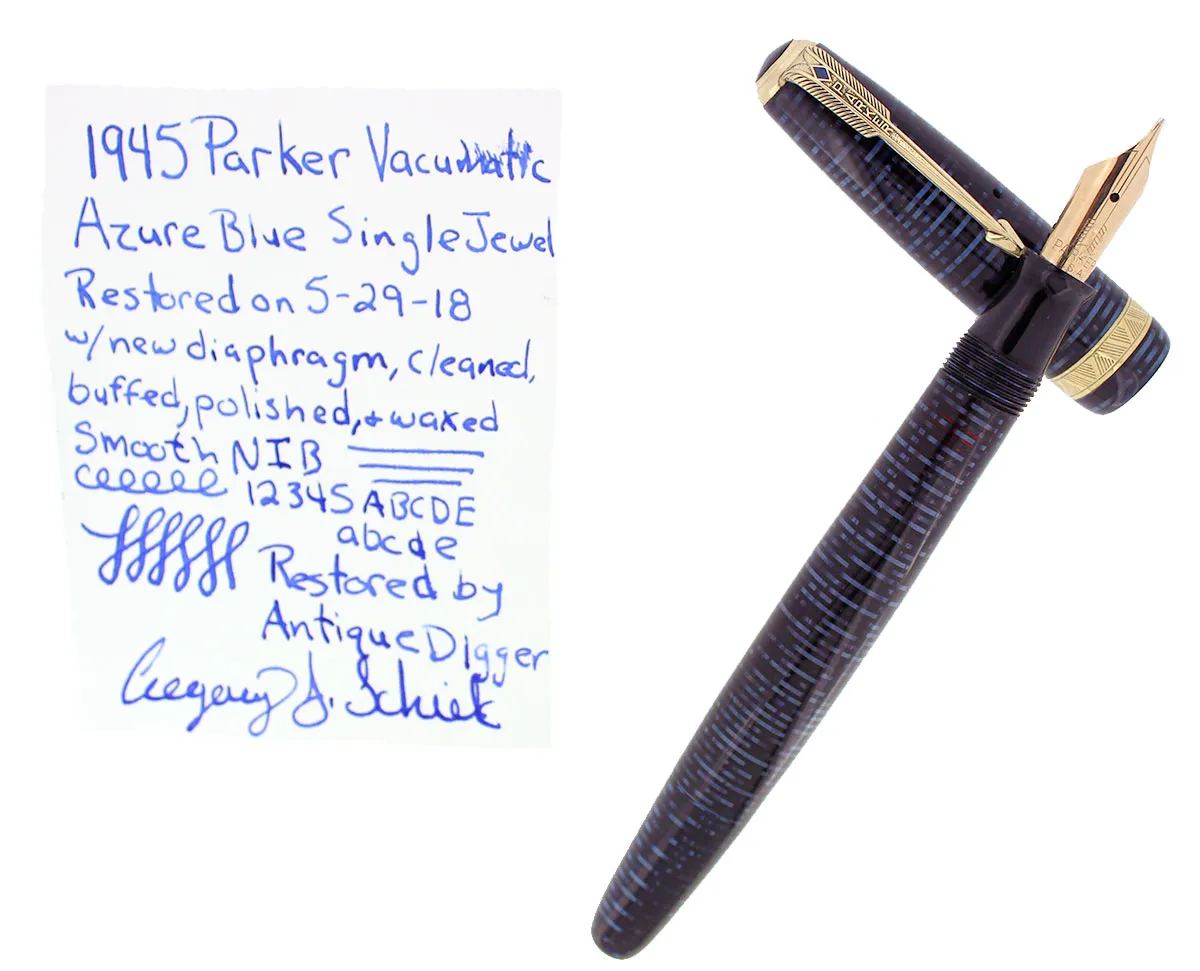 1945 Parker Vacumatic
Azure Blue Single Jewel
Restored on 5-29-18
w/new diaphragm, cleaned,
buffed, polished, + waxed
Smooth NIB
12345 ABCDE
abcde
Restored by
Antique Digger
Gregory J. Schiek
PARKER